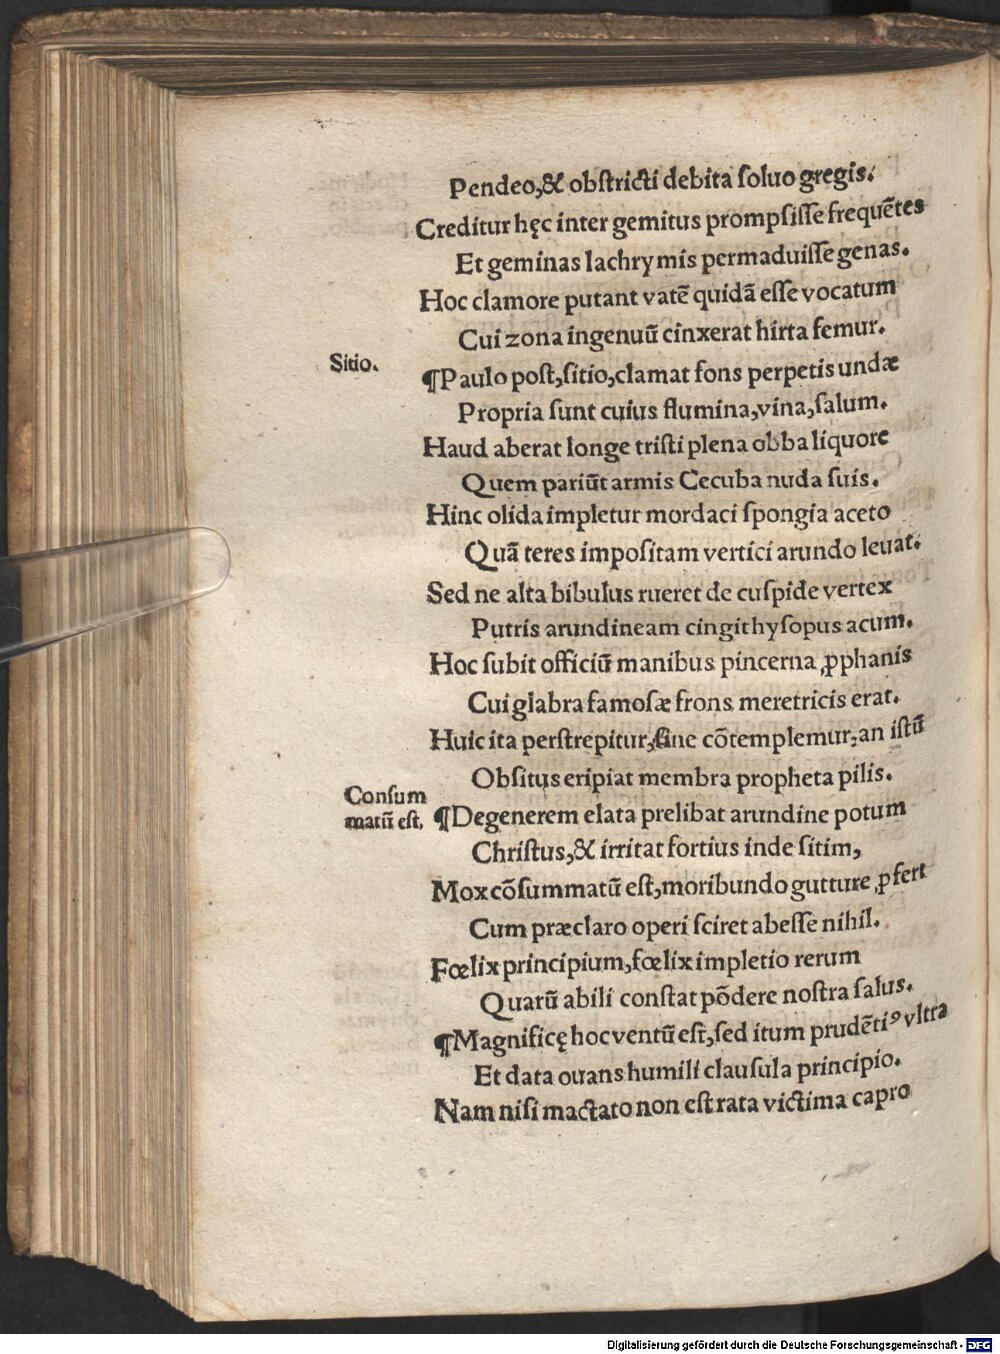 Pendeo,& obstricti debita soluo gregis.
Creditur hęc inter gemitus prompsisse frequẽtes
Et geminas lachrymis permaduisse genas.
Hoc clamore putant vatẽ quidã esse vocatum
Cui zona ingenuũ cinxerat hirta femur.
Sitio.
¶Paulo post,sitio,clamat fons perpetis undæ
Propria sunt cuius flumina,vina,salum.
Haud aberat longe tristi plena obba liquore
Quem pariũt armis Cecuba nuda suis.
Hinc olida impletur mordaci spongia aceto
Quã teres impositam vertici arundo leuat.
Sed ne alta bibulus rueret de cuspide vertex
Putris arundineam cingit hysopus acum.
Hoc subit officiũ manibus pincerna ꝓphanis
Cui glabra famosæ frons meretricis erat.
Huic ita perstrepitur,sine cõtemplemur,an istũ
Obsitus eripiat membra propheta pilis.
Consum
matũ est.
¶Degenerem elata prelibat arundine potum
Christus,& irritat fortius inde sitim,
Mox cõsummatũ est,moribundo gutture ꝓfert
Cum præclaro operi sciret abesse nihil.
Fœlix principium,fœlix impletio rerum
Quarũ abili constat põdere nostra salus.
¶Magnificę hoc ventũ est,sed itum prudẽtiꝰ vltra
Et data ouans humili clausula principio.
Nam nisi mactato non est rata victima capro
Digitalisierung gefördert durch die Deutsche Forschungsgemeinschaft - DFG